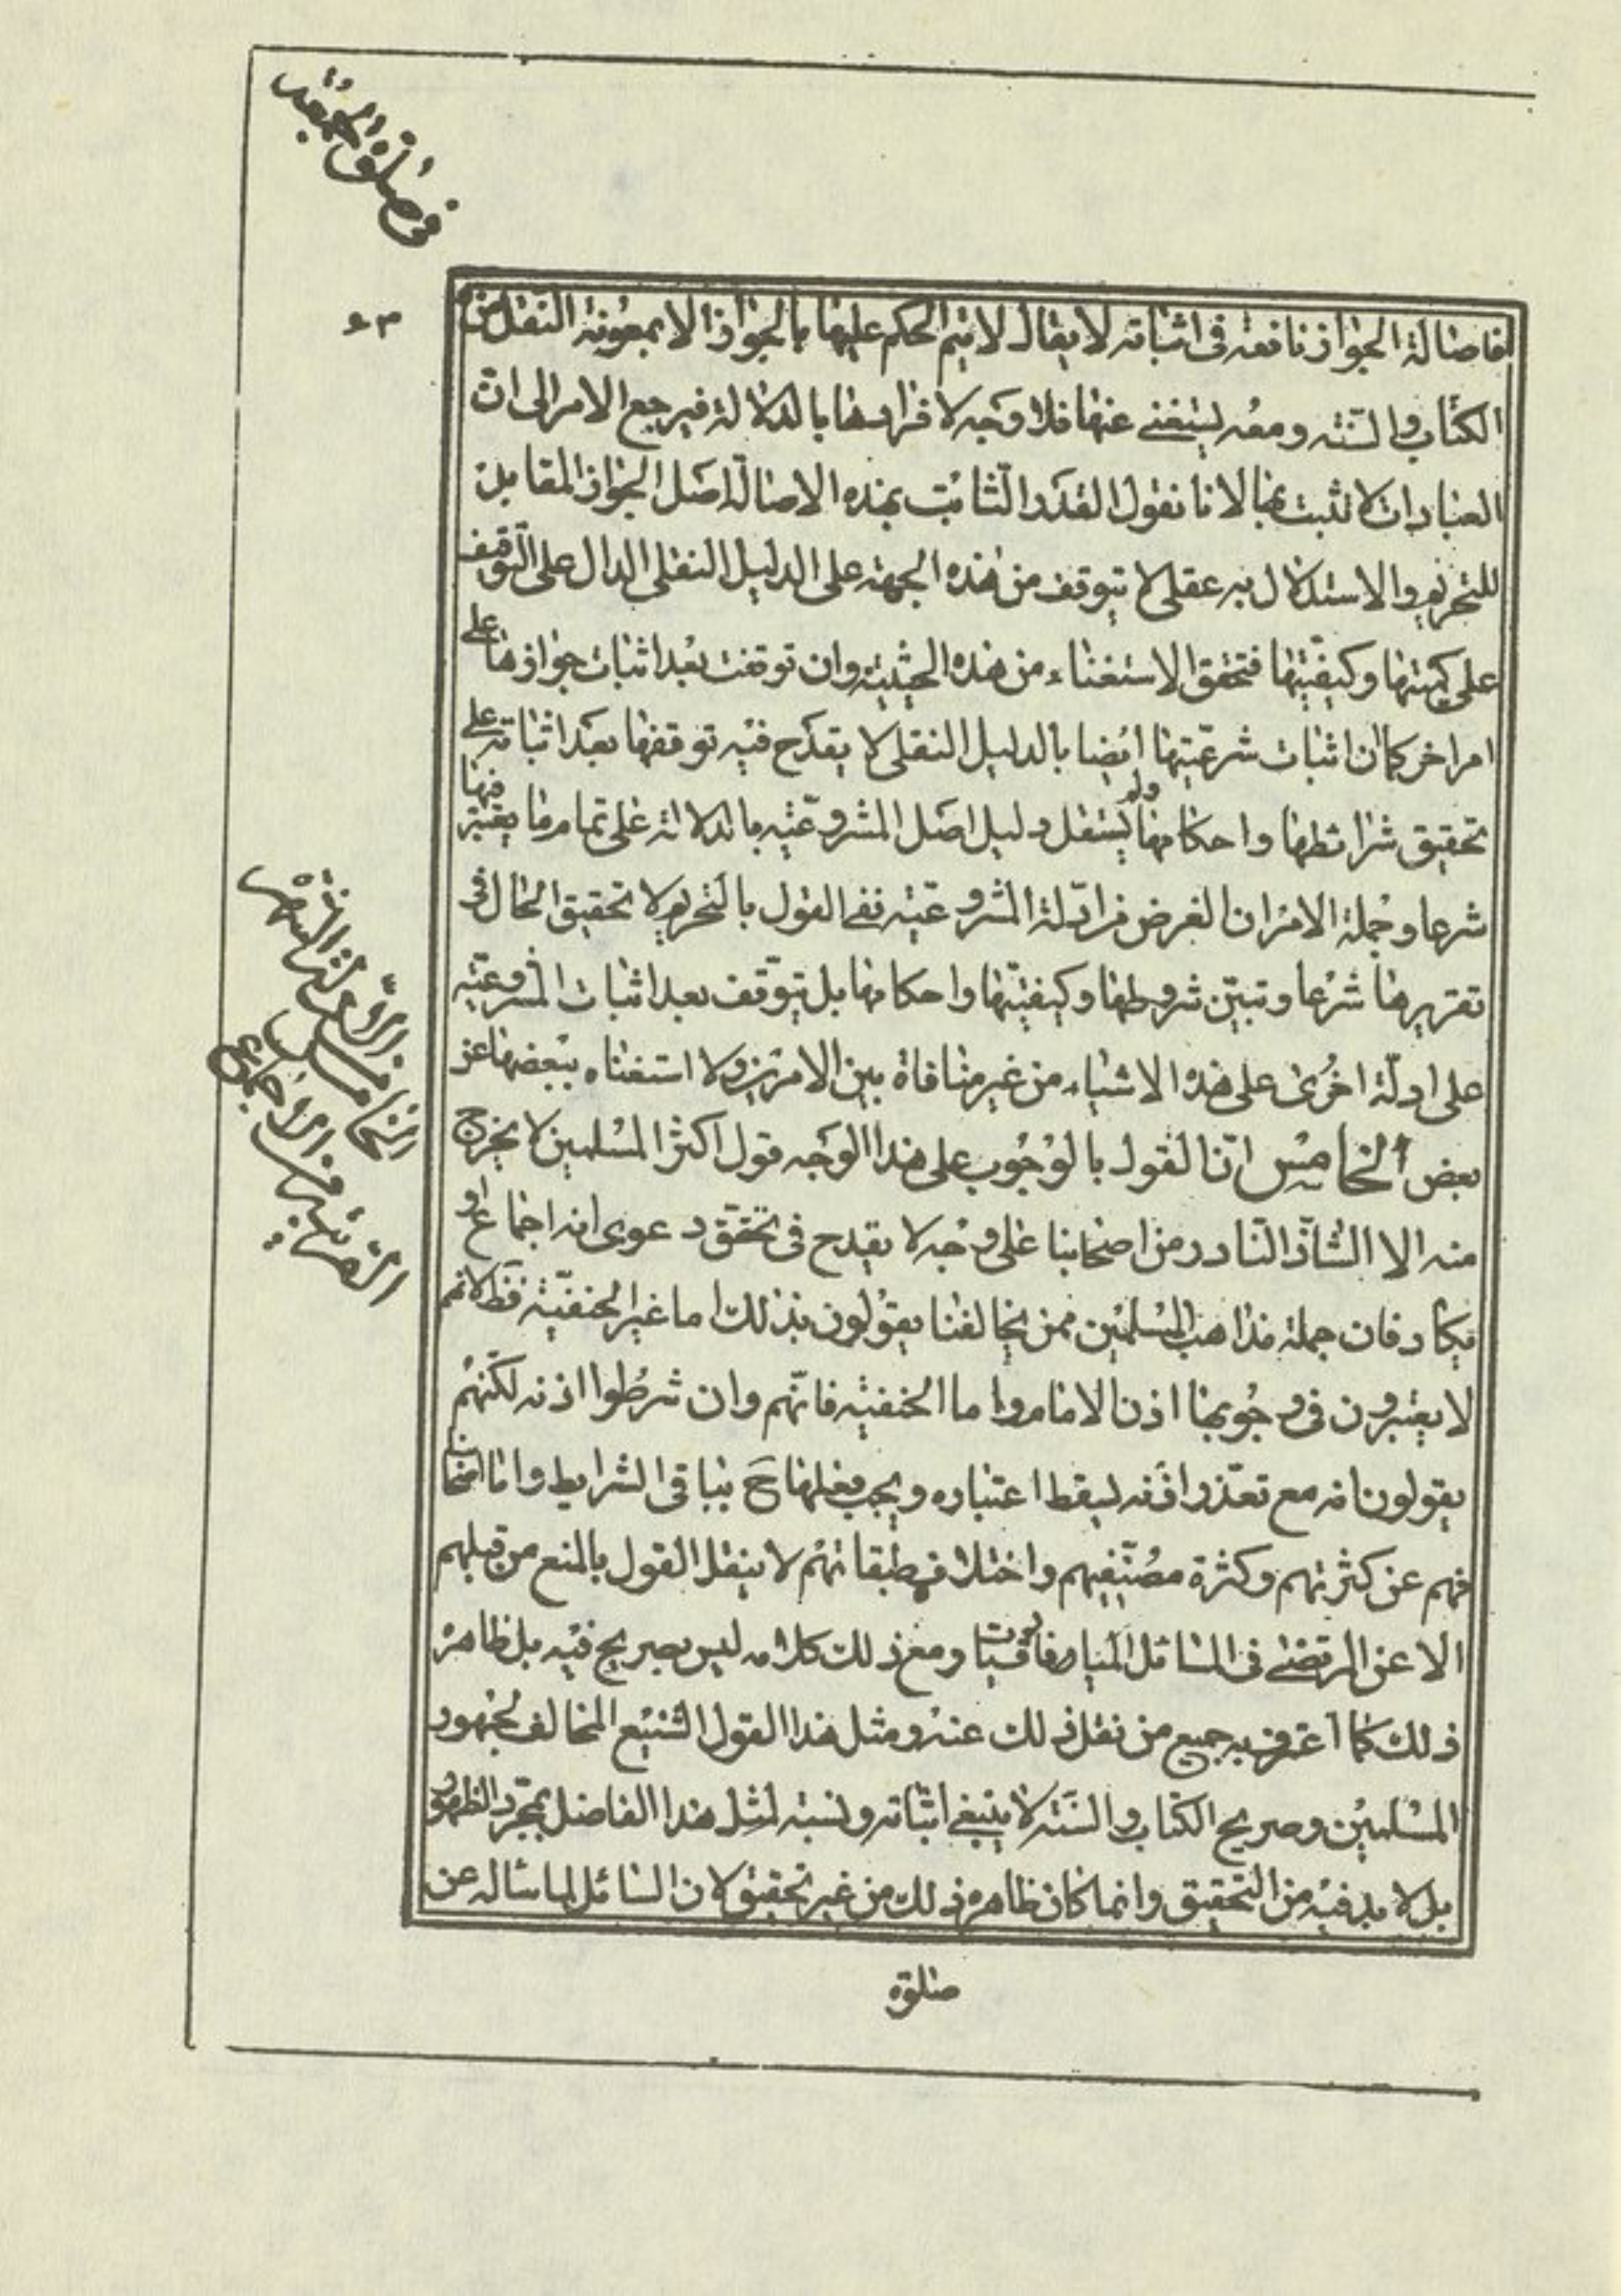 في صلوة الجمعة
٦٣
فاصالة الجواز نافعة فى اثباته لا يقال لا يتم الحكم عليها بالجواز الا بمعونة النقل من
الكتاب والسنته ومعه يستغنى عنها فلا وجه لافرادها بالدلالة فيرجع الامر الى ان
العبادات لا تثبت بها لانا نقول القدر الثابت بهذه الاصالة اصل الجواز المقابل
للتحريم والاستدلال به عقلى لا يتوقف من هذه الجهة على الدليل النقلى الدال على التوقيف
على كميتها وكيفيتها فتحقق الاستغناء من هذه الحيثية وان توقفت بعد اثبات جوازها على
امر اخر كما ان اثبات شرعيتها ايضا بالدليل النقلى لا يقدح فيه توقفها بعد اثباته على
تحقيق شرائطها واحكامها ولم يستقل دليل اصل المشروعية بالدلالة على تمام ما يعتبر فيها
شرعا وجملة الامر ان الغرض من ادلة المشروعية نفى القول بالتحريم لا تحقيق الحال فى
تقريرها شرعا وتبين شروطها وكيفيتها واحكامها بل يتوقف بعد اثبات المشروعية
على ادلة اخرى على هذه الاشياء من غير منافاة بين الامرين ولا استغناء ببعضها عن
بعض الخامس ان القول بالوجوب على هذا الوجه قول اكثر المسلمين لا يخرج
منه الا الشاذ النادر من اصحابنا على وجه لا يقدح فى تحقق دعوى انه اجماع او
يكاد فان جملة مذاهب المسلمين ممن يخالفنا يقولون بذلك اما غير الحنفية فظ لانهم
لا يعتبرون فى وجوبها اذن الامام واما الحنفية فانهم وان شرطوا اذنه لكنهم
يقولون انه مع تعذر اذنه يسقط اعتباره ويجب فعلها ح بباقى الشرايط واما اصحابنا
فهم عن كثرتهم وكثرة مصنفيهم واختلاف طبقاتهم لا ينقل القول بالمنع من قبلهم
الا عن المرتضى فى المسائل الميافارقيات ومع ذلك كلامه ليس بصريح فيه بل ظاهره
ذلك كما اعترف به جميع من نقل ذلك عنه ومثل هذا القول الشنيع المخالف لجمهور
المسلمين وصريح الكتاب والسنة لا ينبغى اثباته ونسبته لمثل هذا الفاضل بمجرد الظهور
بل لا بد فيه من التحقيق وانما كان ظاهره ذلك من غير تحقيق لان السائل لما سأله عن
صلوة